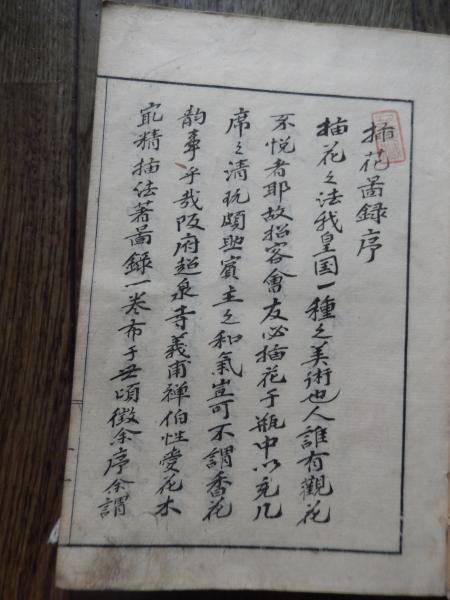 挿花啚録序
挿花之法我皇国一種之美術也人誰有觀花
不悦者耶故招客會友必挿花于瓶中以充几
席之清玩頗助賓主之和氣豈可不謂香花
韵事乎哉阪府超泉寺義甫禅伯性愛花木
最精挿法著啚録一巻布于世頃徴余序余謂